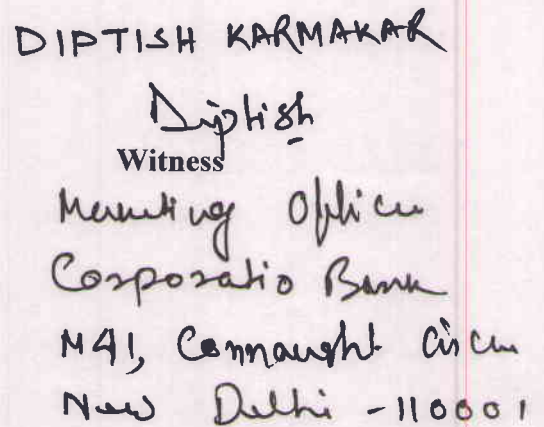 DIPTISH KARMAKAR
Diptish
Witness
Marketing Officer
Corporatio Bank
M41, Connaught Circus
New Delhi - 110001